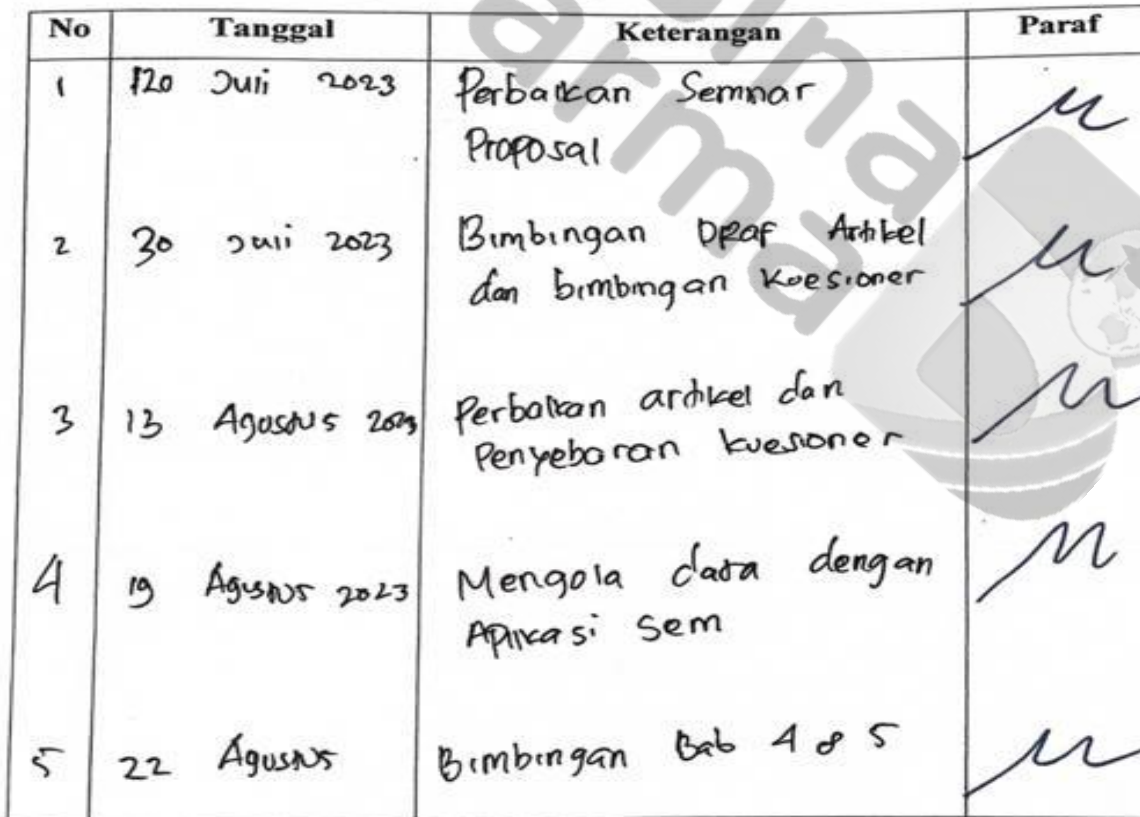 No Tanggal Keterangan Paraf
1 120 Juli 2023 Perbaikan Seminar
Proposal
2 30 Juli 2023 Bimbingan Draf Artikel
dan bimbingan Kuesioner
3 13 Agustus 2023 Perbaikan artikel dan
Penyebaran kuesioner
4 19 Agustus 2023 Mengola data dengan
Aplikasi Sem
5 22 Agustus Bimbingan Bab 4 & 5